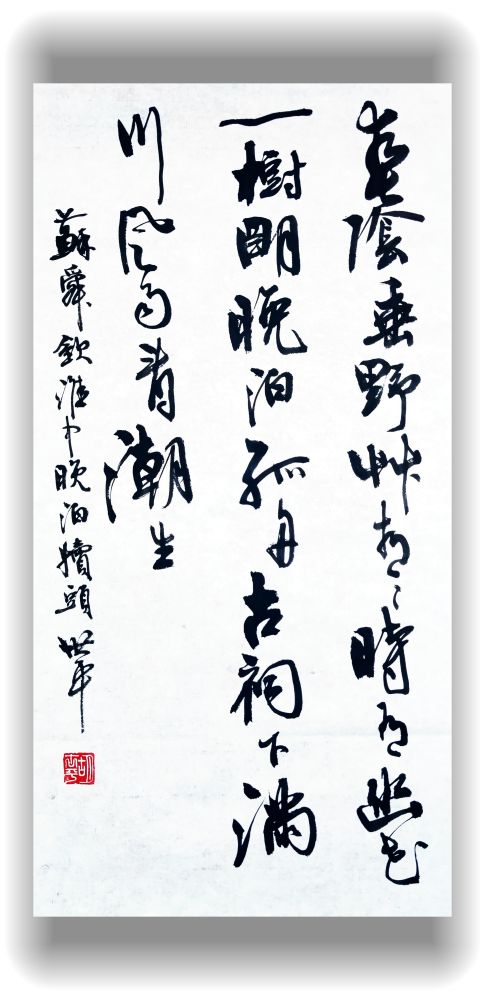 春陰垂野艸青々時有幽花
一樹明晚泊孤舟古祠下滿
川風雨看潮生
蘇舜欽淮中晚泊犢頭